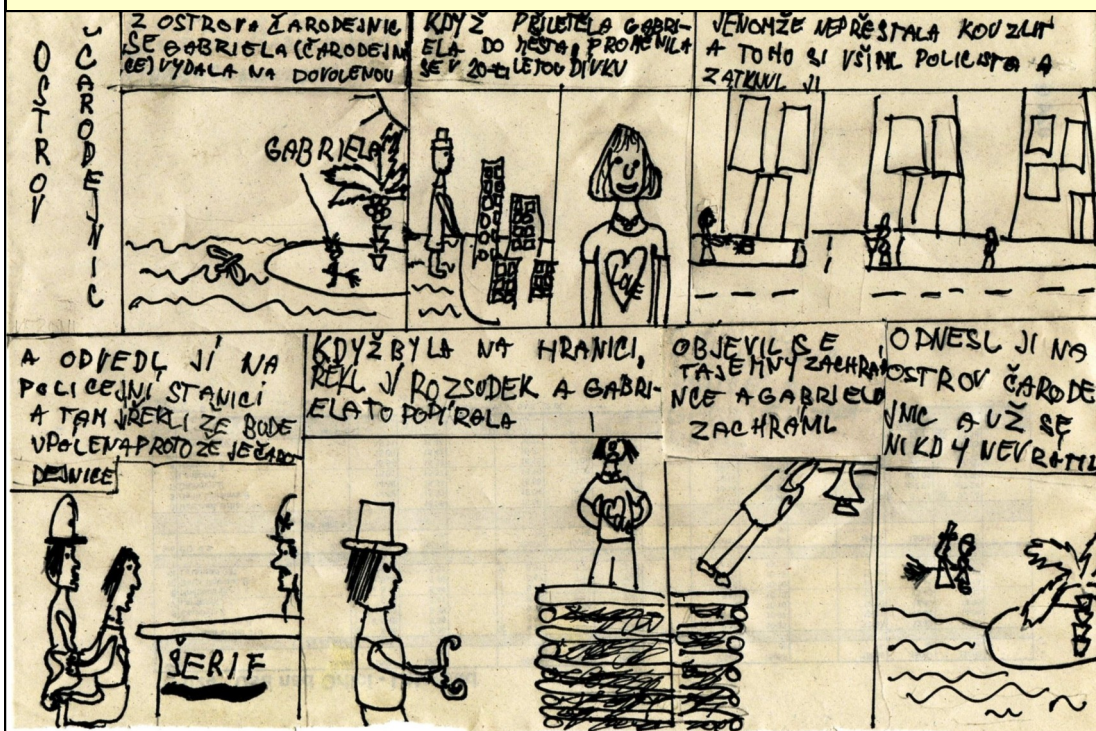 OSTROV
ČARODEJNIC
Z OSTROVA ČARODEJNIC
SE GABRIELA (ČARODEJNI
CE) VYDALA NA DOVOLENOU
GABRIELA
KDYŽ PŘILETĚLA GABRI-
ELA DO MĚSTA, PROMĚNILA
SE V 20-ti LETOU DÍVKU
LOVE
JENOMŽE NEPŘESTALA KOUZLIT
A TOHO SI VŠIML POLICISTA A
ZATKNUL JI
A ODVEDL JÍ NA
POLICEJNÍ STANICI
A TAM JI ŘEKLI ŽE BUDE
UPÁLENA PROTOŽE JE ČARO
DEJNICE
ŠERIF
KDYŽ BYLA NA HRANICI,
ŘEKL JÍ ROZSUDEK A GABRI-
ELA TO POPÍRALA
OBJEVIL SE
TAJEMNÝ ZACHRÁ
NCE A GABRIELU
ZACHRÁNIL
ODNESL JI NA
OSTROV ČARODE
JNIC A UŽ SE
NIKDY NEVRÁTIL